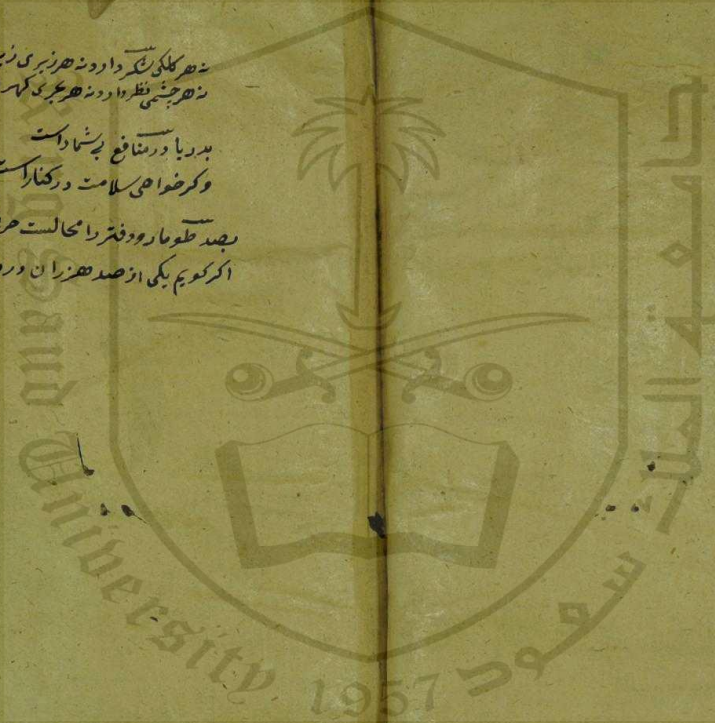 نه هر کلکی شکر دارد نه هر زیری
نه هر چشمی نظر دارد نه هر بحری کهر
بدریا در منافع بی شمار است
وکر خواهی سلامت در کنار است
بصد طومار و دفتر را محالست
اکر کویم یکی از صد هزران
King Saud University
1957
جامعة الملك سعود